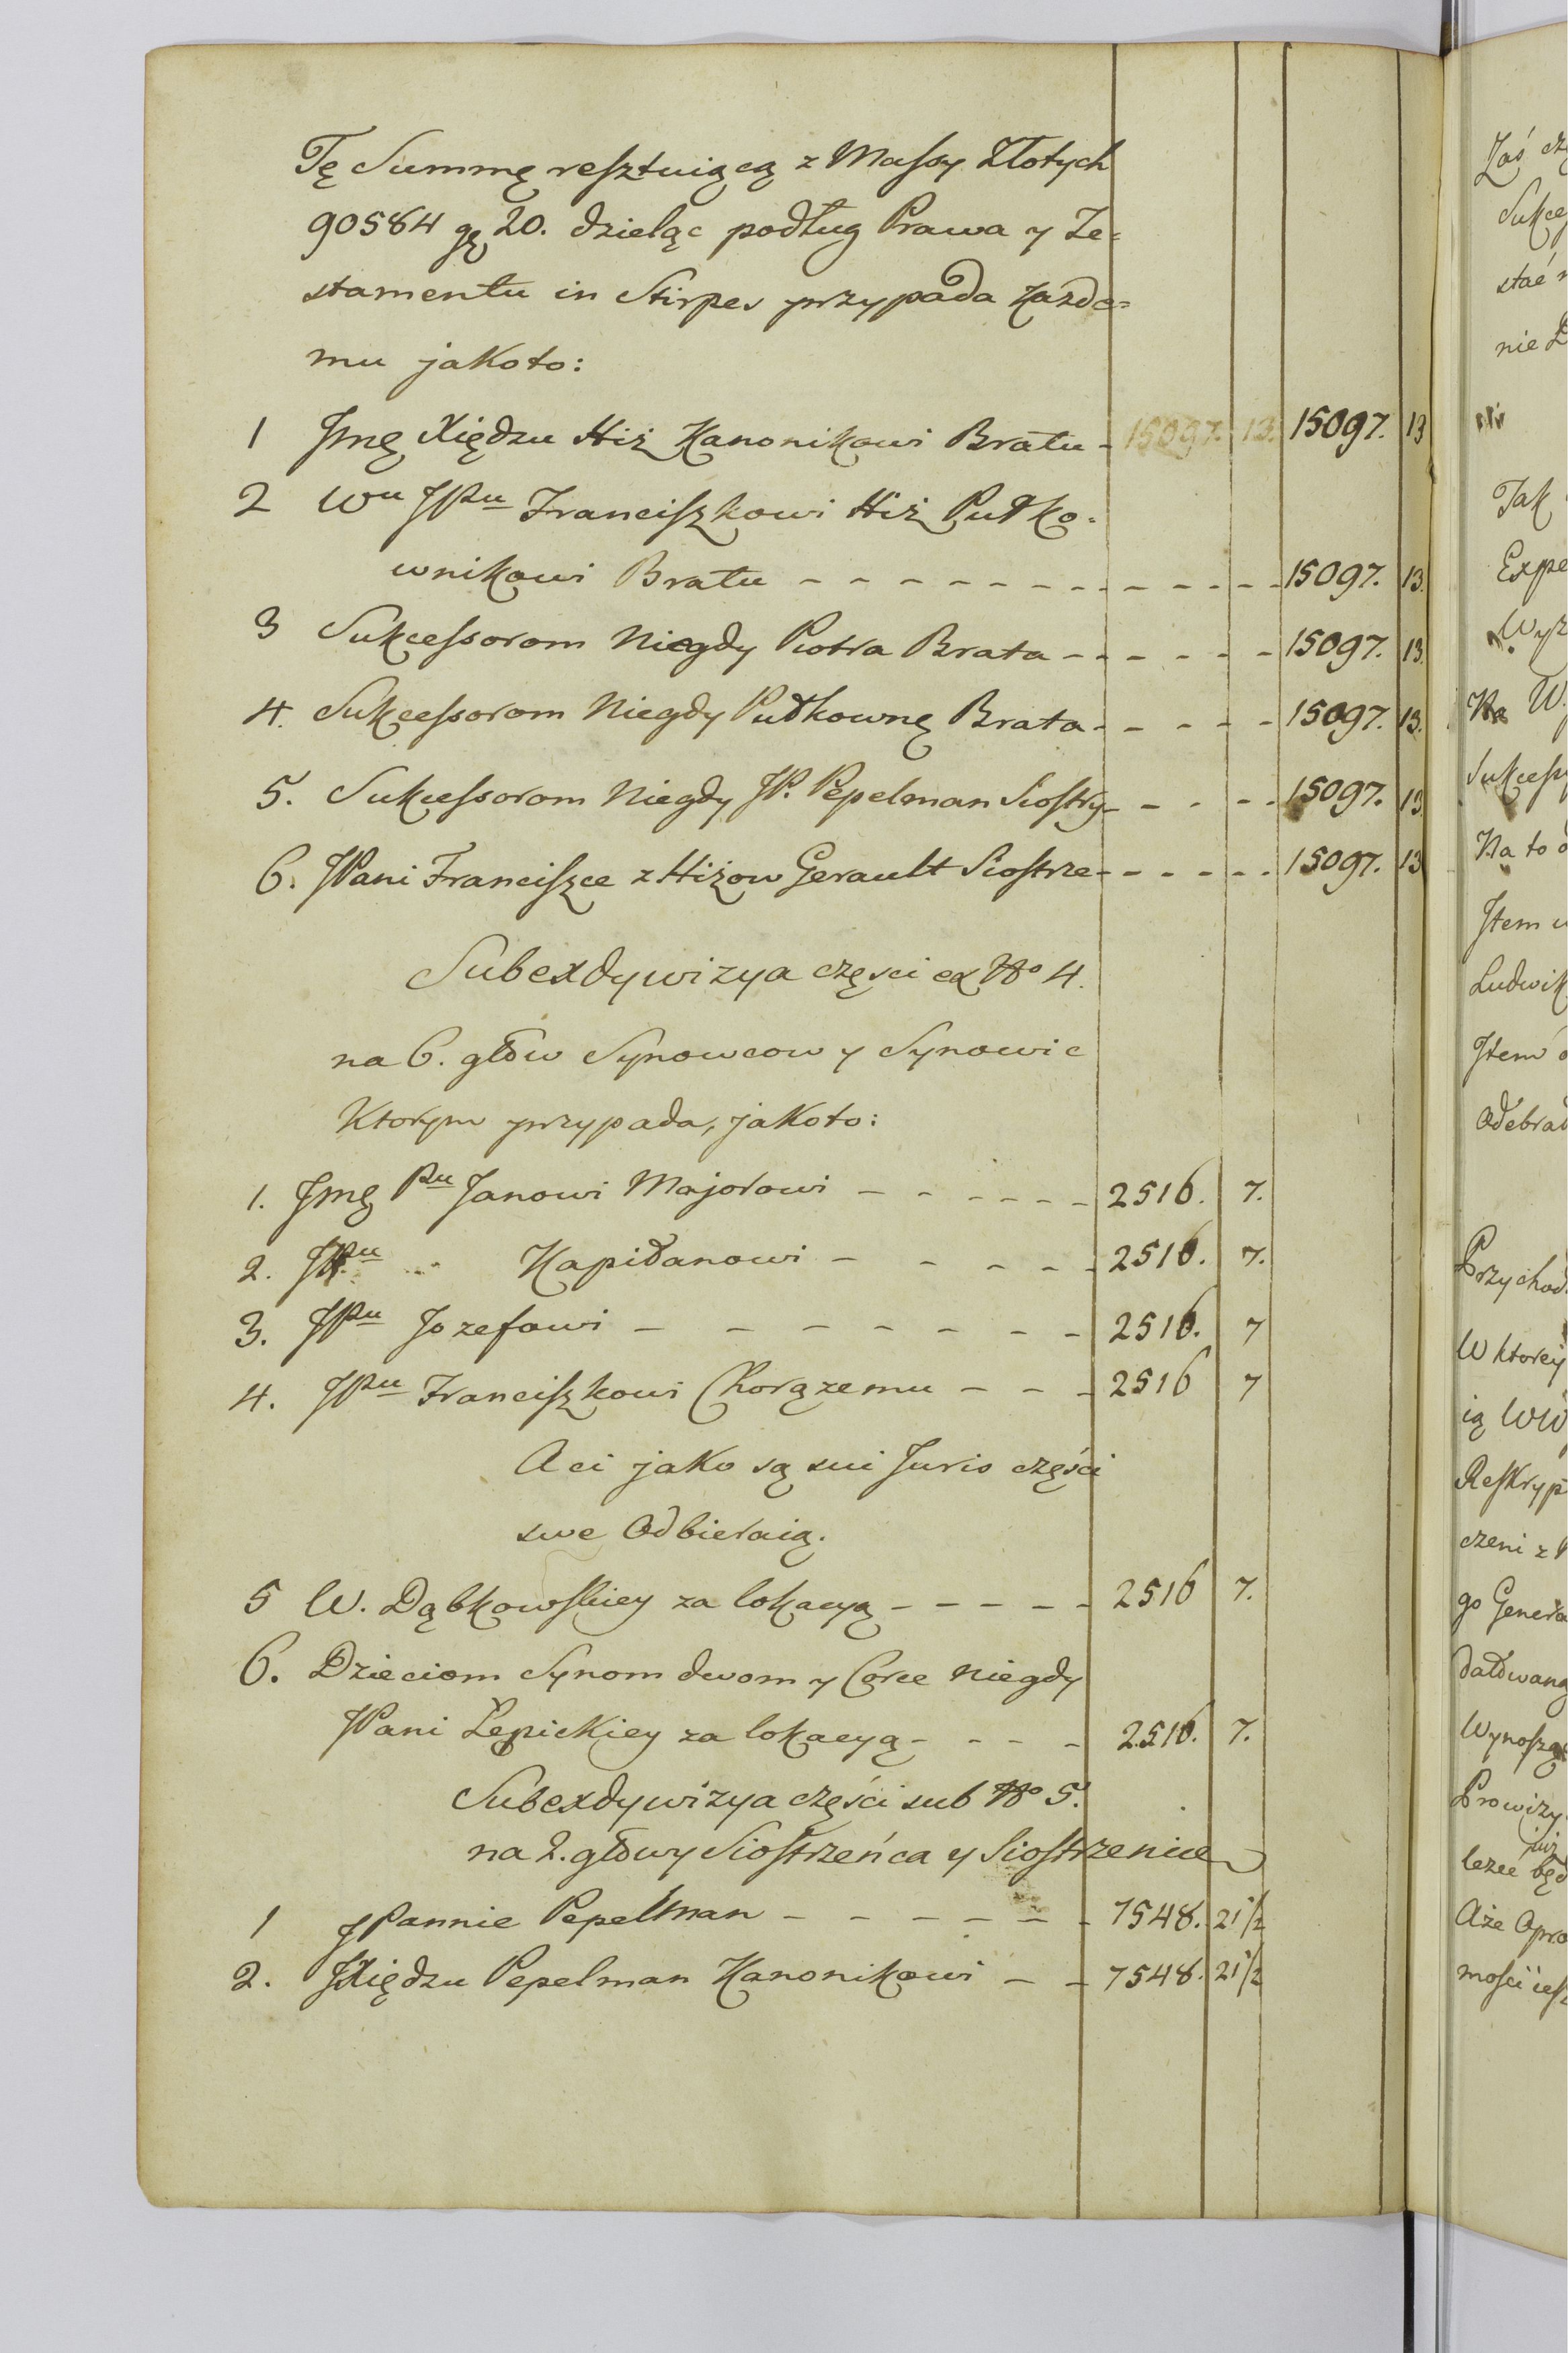 Tę Summę resztuiącą z Massy Złotych
90584 gę 20. dzieląc podług Prawa y Te=
stamentu in Stirpes przypada każde=
mu jakoto:
1 Jmę Xiędzu Hiż Kanonikowi Bratu - 15097. 13. 15097. 13
2 Wu JPu Franciszkowi Hiż Pułko=
wnikowi Bratu - - - - - - - - - - - - 15097. 13.
3 Sukcessorom Niegdy Piotra Brata - - - - - - 15097. 13.
4. Sukcessorom Niegdy Pułkownę Brata - - - - - 15097. 13.
5. Sukcessorom Niegdy JP. Pepelman Siostry - - - - - 15097. 13
6. JPani Franciszce z Hiżow Gerault Siostrze - - - - - - 15097. 13
Subexdywizya częsci ex No 4.
na 6. głów Synowcow y Synowic
Ktorym przypada, jakoto:
1. Jmę Pu Janowi Majorowi - - - - - - 2516. 7.
2. JPu Kapitanowi - - - - - 2516. 7.
3. JPu Jozefowi - - - - - - - 2516. 7
4. JPu Franciszkowi Chorązemu - - - 2516 7
A ci jako są sui Juris części
swe Odbieraią.
5 W. Dąbkowskiey za lokacyą - - - - - 2516 7.
6. Dzieciom Synom dwom y Corce niegdy
JPani Łepickiey za lokacyą - - - - 2516. 7.
Subexdywizya części sub No 5.
na 2. głowy Siostrzeńca y Siostrzenice
1 JPannie Pepelman - - - - - - 7548. 21 1/2
2. JXiędzu Pepelman Kanonikowi - - 7548. 21 1/2
Zaś
stać
nie
Tak
Expe
Wyz
Na W.
Na to
Item
Ludwik
Item
Odebrał
Przychod
W ktorey
ią WW
Reskryp
czeni z
go Genera
Wynoszą
Prowizy
już
leżce
Aże
mości